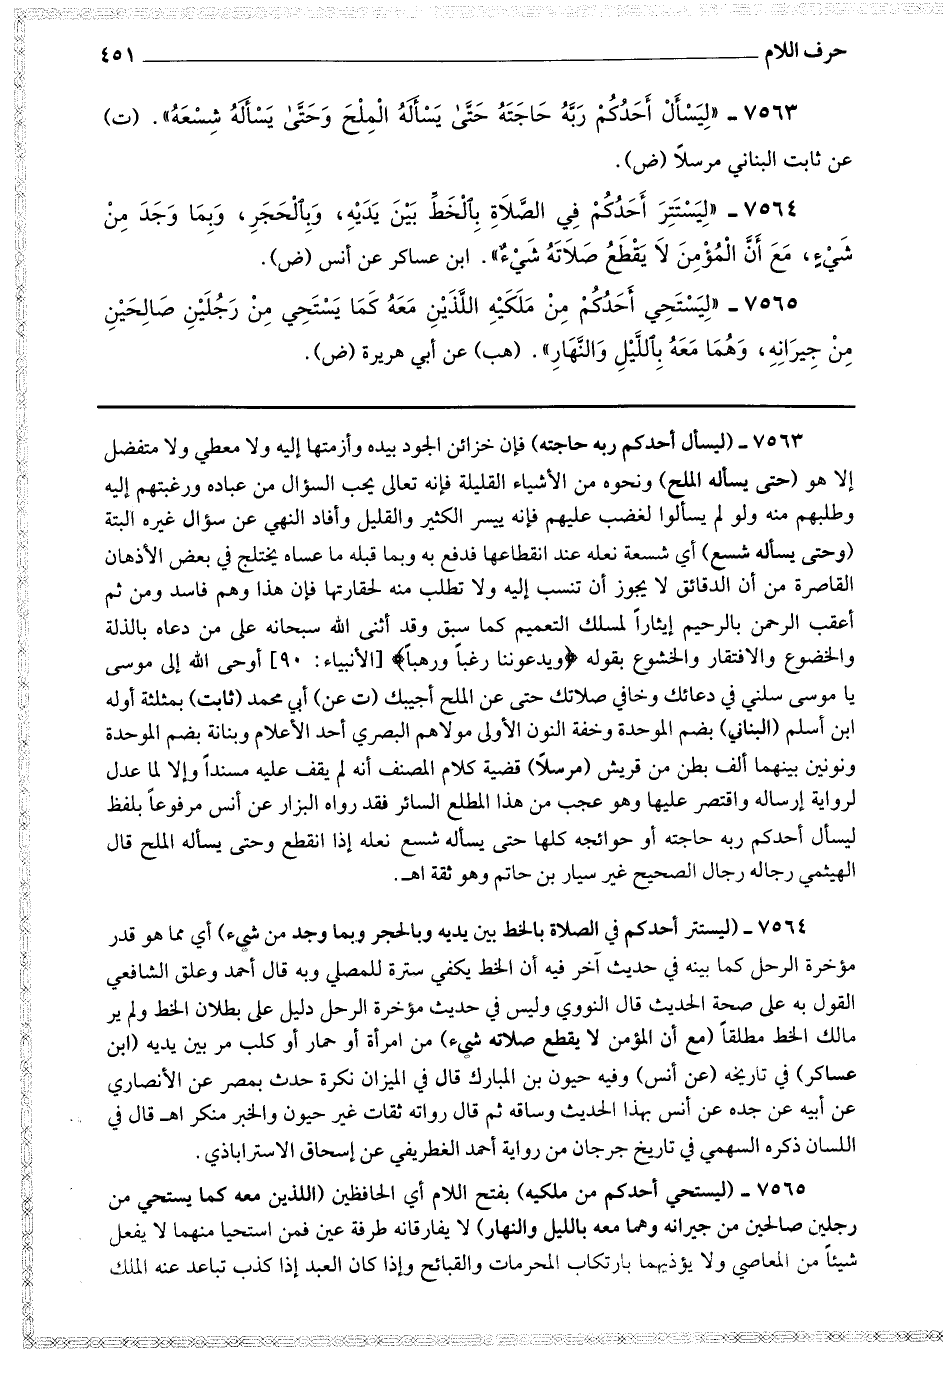 حرف اللام ٤٥١
٧٥٦٣ ـ «لِيَسْأَلْ أَحَدُكُمْ رَبَّهُ حَاجَتَهُ حَتَّىٰ يَسْأَلَهُ الْمِلْحَ وَحَتَّىٰ يَسْأَلَهُ شِسْعَهُ». (ت)
عن ثابت البناني مرسلاً (ض).
٧٥٦٤ ـ «لِيَسْتَتِرَ أَحَدُكُمْ فِي الصَّلَاةِ بِالْخَطِّ بَيْنَ يَدَيْهِ، وَبِالْحَجَرِ، وَبِمَا وَجَدَ مِنْ
شَيْءٍ، مَعَ أَنَّ الْمُؤْمِنَ لَا يَقْطَعُ صَلَاتَهُ شَيْءٌ». ابن عساكر عن أنس (ض).
٧٥٦٥ ـ «لِيَسْتَحِي أَحَدُكُمْ مِنْ مَلَكَيْهِ اللَّذَيْنِ مَعَهُ كَمَا يَسْتَحِي مِنْ رَجُلَيْنِ صَالِحَيْنِ
مِنْ جِيرَانِهِ، وَهُمَا مَعَهُ بِاللَّيْلِ وَالنَّهَارِ». (هب) عن أبي هريرة (ض).
٧٥٦٣ ـ (ليسأل أحدكم ربه حاجته) فإن خزائن الجود بيده وأزمتها إليه ولا معطي ولا متفضل
إلا هو (حتى يسأله الملح) ونحوه من الأشياء القليلة فإنه تعالى يحب السؤال من عباده ورغبتهم إليه
وطلبهم منه ولو لم يسألوا لغضب عليهم فإنه ييسر الكثير والقليل وأفاد النهي عن سؤال غيره البتة
(وحتى يسأله شسع) أي شسعة نعله عند انقطاعها فدفع به وبما قبله ما عساه يختلج في بعض الأذهان
القاصرة من أن الدقائق لا يجوز أن تنسب إليه ولا تطلب منه لحقارتها فإن هذا وهم فاسد ومن ثم
أعقب الرحمن بالرحيم إيثاراً لمسلك التعميم كما سبق وقد أثنى الله سبحانه على من دعاه بالذلة
والخضوع والافتقار والخشوع بقوله ﴿ويدعوننا رغباً ورهباً﴾ [الأنبياء: ٩٠] أوحى الله إلى موسى
يا موسى سلني في دعائك وخافي صلاتك حتى عن الملح أجيبك (ت عن) أبي محمد (ثابت) بمثلثة أوله
ابن أسلم (البناني) بضم الموحدة وخفة النون الأولى مولاهم البصري أحد الأعلام وبنانة بضم الموحدة
ونونين بينهما ألف بطن من قريش (مرسلاً) قضية كلام المصنف أنه لم يقف عليه مسنداً وإلا لما عدل
لرواية إرساله واقتصر عليها وهو عجب من هذا المطلع السائر فقد رواه البزار عن أنس مرفوعاً بلفظ
ليسأل أحدكم ربه حاجته أو حوائجه كلها حتى يسأله شسع نعله إذا انقطع وحتى يسأله الملح قال
الهيثمي رجاله رجال الصحيح غير سيار بن حاتم وهو ثقة اهـ.
٧٥٦٤ ـ (ليستتر أحدكم في الصلاة بالخط بين يديه وبالحجر وبما وجد من شيء) أي مما هو قدر
مؤخرة الرحل كما بينه في حديث آخر فيه أن الخط يكفي سترة للمصلي وبه قال أحمد وعلق الشافعي
القول به على صحة الحديث قال النووي وليس في حديث مؤخرة الرحل دليل على بطلان الخط ولم ير
مالك الخط مطلقاً (مع أن المؤمن لا يقطع صلاته شيء) من امرأة أو حمار أو كلب مر بين يديه (ابن
عساكر) في تاريخه (عن أنس) وفيه حيون بن المبارك قال في الميزان نكرة حدث بمصر عن الأنصاري
عن أبيه عن جده عن أنس بهذا الحديث وساقه ثم قال رواته ثقات غير حيون والخبر منكر اهـ قال في
اللسان ذكره السهمي في تاريخ جرجان من رواية أحمد الغطريفي عن إسحاق الاستراباذي.
٧٥٦٥ ـ (ليستحي أحدكم من ملكيه) بفتح اللام أي الحافظين (اللذين معه كما يستحي من
رجلين صالحين من جيرانه وهما معه بالليل والنهار) لا يفارقانه طرفة عين فمن استحيا منهما لا يفعل
شيئاً من المعاصي ولا يؤذيهما بارتكاب المحرمات والقبائح وإذا كان العبد إذا كذب تباعد عنه الملك